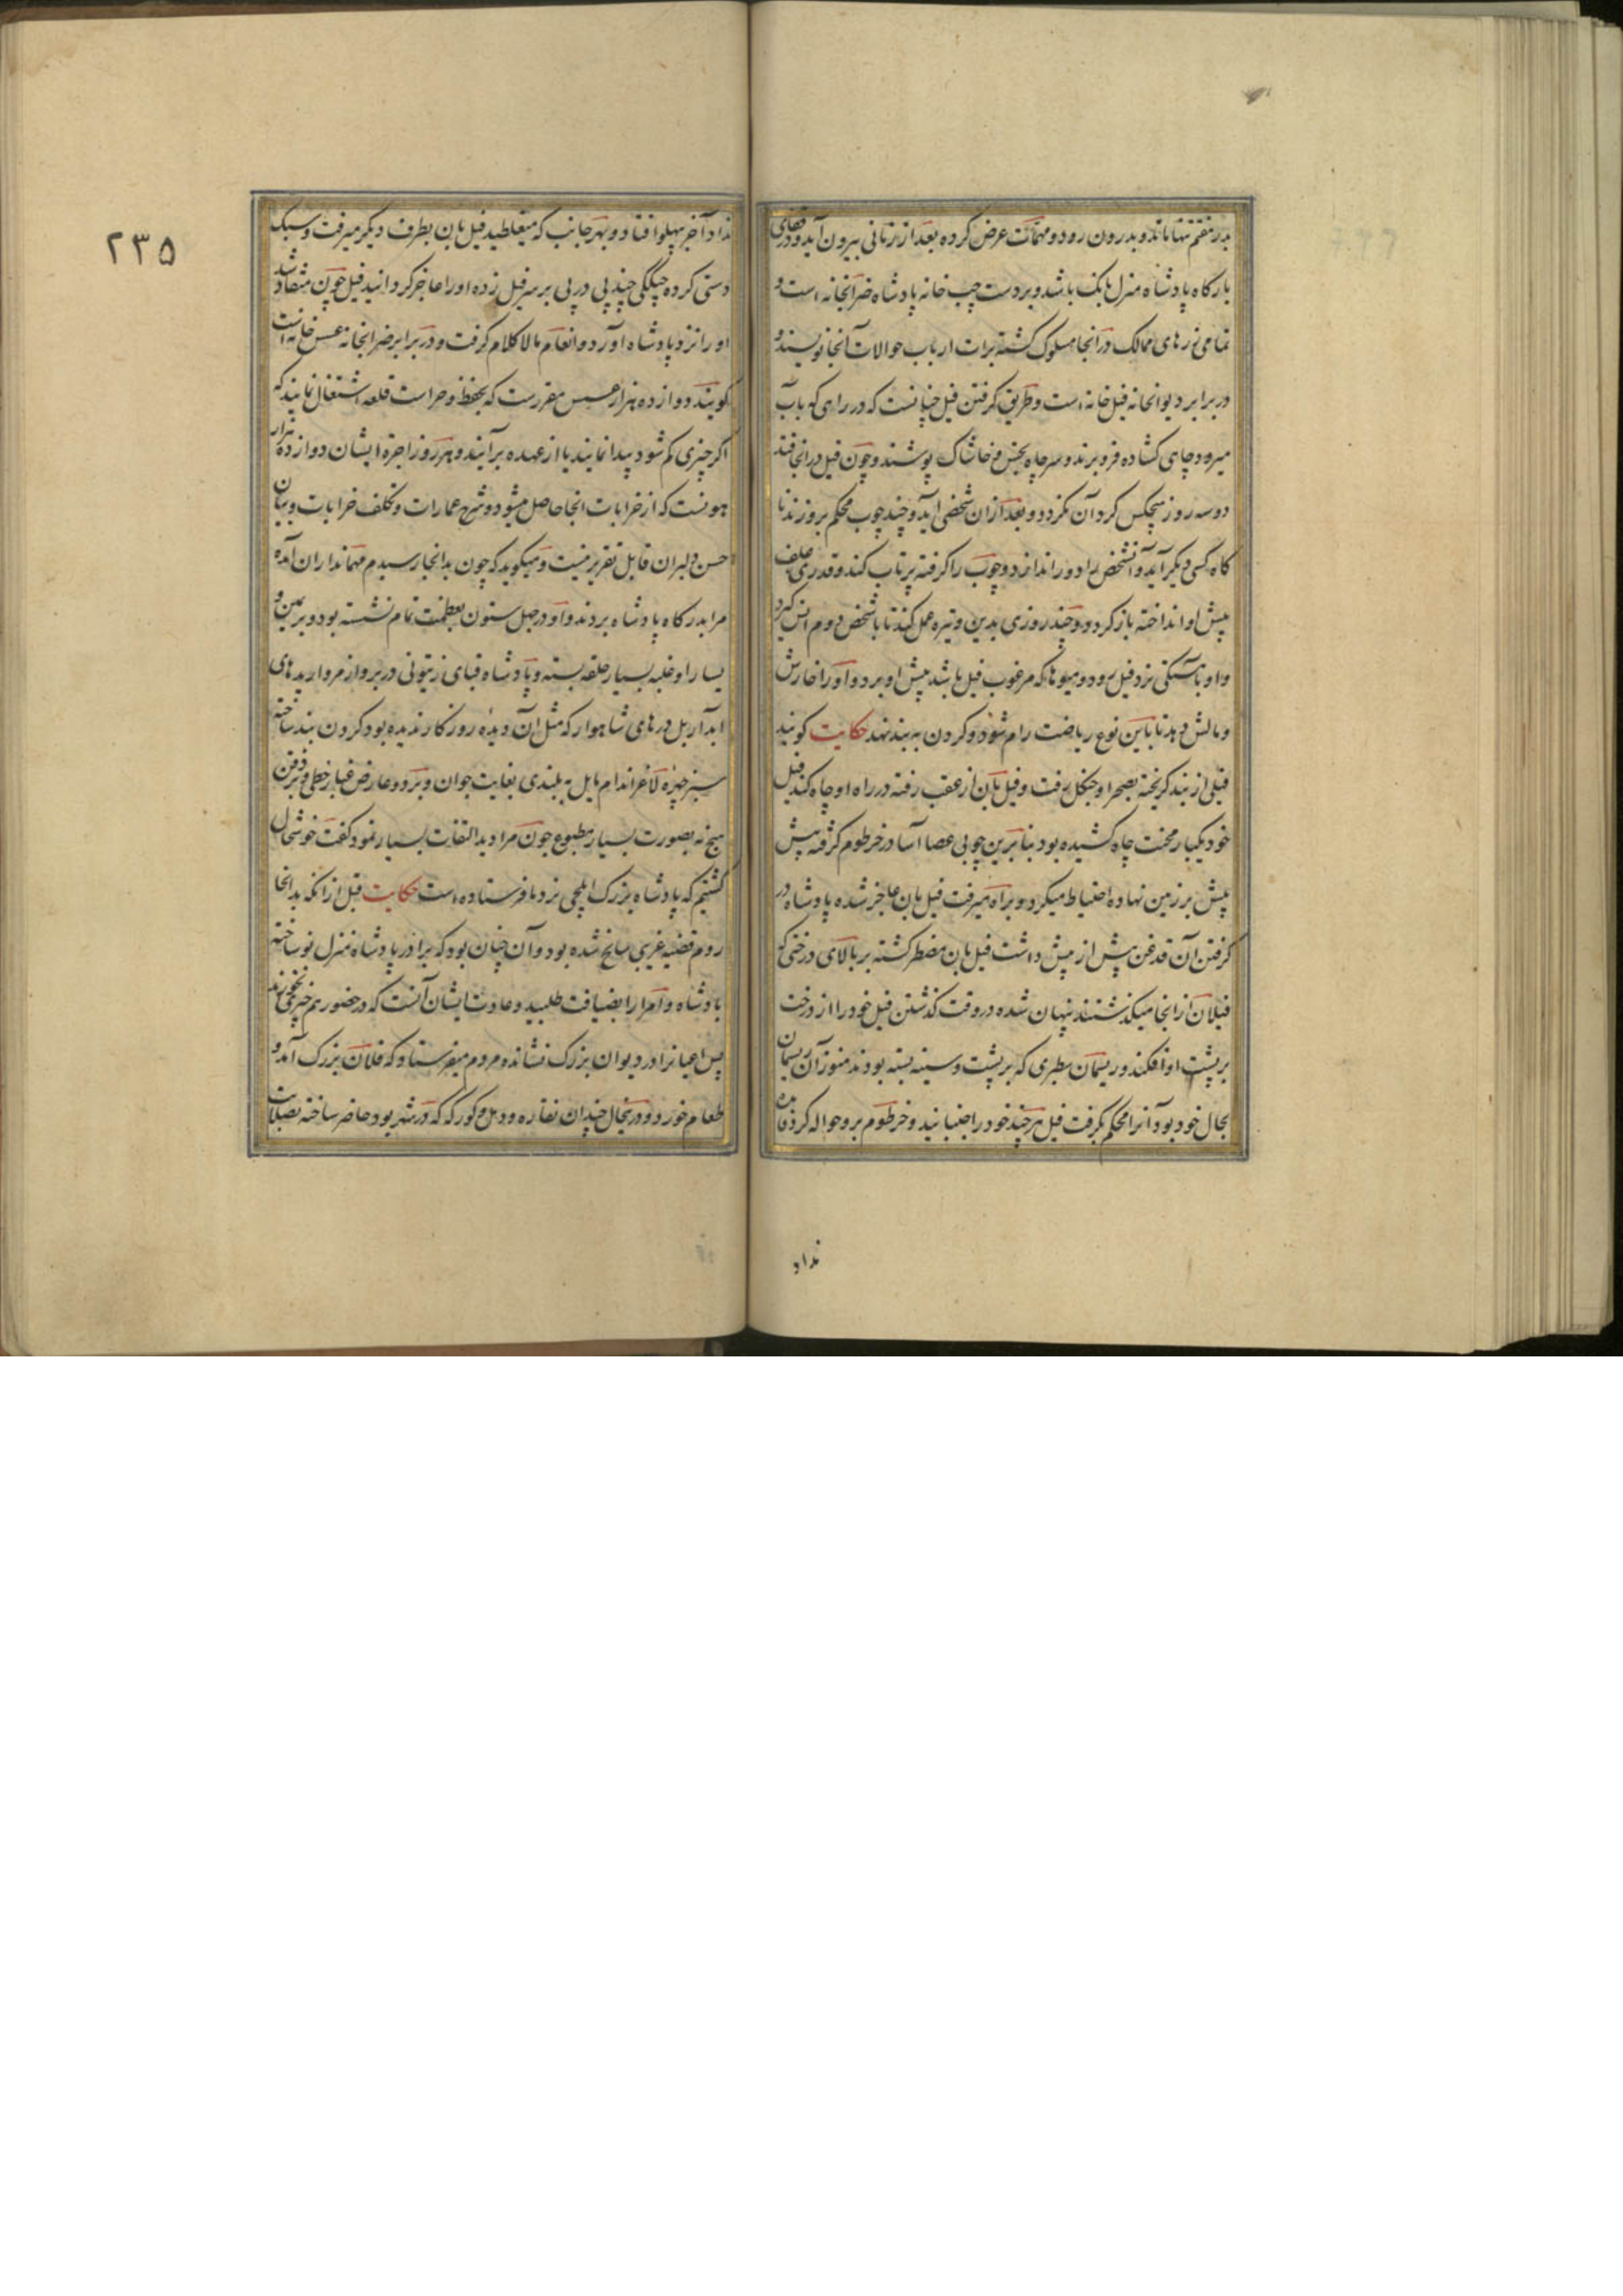 بدر هفتم تنها ماند و بدرون رود و مهمات عرض کرده بعد از زمانی بیرون آید و در قفای
بارکاه پادشاه منزل بانک باشد و بر دست چپ خانه پادشاه ضرابخانه است و
تمامی زرهای ممالک در انجا مسکوک کشته برات ارباب حوالات آنجا نویسند و
در برابر دیوانخانه فیل خانه است و طریق کرفتن فیل چنانست که در راهی که بآب
میرود چاهی کشاده فرو برند و سر چاه بخس و خاشاک پوشند و چون فیل در انجا افتد
دو سه روز هیچکس کرد آن نکردد و بعد از ان شخصی آید و چند چوب محکم برو زند تا
کاه کسی دیکر آید و آنشخص را دور اندازد و چوب را کرفته پرتاب کند و قدری علف
پیش او انداخته باز کردد و چند روزی بدین وتیره عمل کنند تا با شخص دوم انس کیرد
و او باهستکی نزد فیل رود و میوها که مرغوب فیل باشد پیش او برد و او را خارش
و مالش دهد تا باین نوع ریاضت رام شود و کردن به بند نهد حکایت کویند
فیلی از بند کریخته بصحرا و جنکل رفت و فیل بان از عقب رفته در راه او چاه کند فیل
خود یکبار محنت چاه کشیده بود بنابرین چوبی عصا آسا در خرطوم کرفته پیش
پیش بر زمین نهاده احتیاط میکرد و براه میرفت فیل بان عاجز شده پادشاه در
کرفتن آن قدغن پیش از پیش داشت فیل بان مضطر کشته بر بالای درختی که
فیلان از انجا میکذشتند پنهان شده در وقت کذشتن فیل خود را از درخت
بر پشت او افکند و ریسمان سطبری که بر پشت و سینه بسته بودند هنوز آن ریسمان
بحال خود بود آنرا محکم بکرفت فیل هر چند خود را جنبانید و خرطوم برو حواله کرد فایده
نداد
۲۳۵
نداد آخر بپهلو افتاد و بهر جانب که میغلطید فیل بان بطرف دیکر میرفت و سبک
دستی کرده چکلی چند پی در پی بر سر فیل زده او را عاجز کردانید فیل چون منقاد شد
او را نزد پادشاه آورد و انعام مالا کلام کرفت و در برابر ضرابخانه عسس خانه است
کویند دوازده هزار عسس مقررست که بحفظ و حراست قلعه اشتغال نمایند که
اکر چیزی کم شود پیدا نمایند یا از عهده برآیند و هر روز اجرۀ ایشان دوازده هزار
هونست که از خرابات انجا حاصل میشود و شرح عمارات و تکلف خرابات و بیان
حسن دلبران قابل تقریر نیست و میکوید که چون بدانجا رسیدم مهمانداران آمده
مرا بدرکاه پادشاه بردند و او در چهل ستون بعظمت تمام نشسته بود و بر یمین و
یسار او غلبه بسیار حلقه بسته و پادشاه قبای زیتونی در بر و از مرواریدهای
آبدار بل درهای شاهوار که مثل آن دیده روزکار ندیده بود کردن بند ساخته
سبز چهره لاغر اندام مایل به بلندی بغایت جوان و بر دو عارض غبار خطی و بر ذقن
هیچ نه بصورت بسیار مطبوع چون مرا دید التفات بسیار نمود کفت خوشحال
کشتیم که پادشاه بزرک ایلچی نزد ما فرستاده است حکایت قبل از انکه بدانجا
روم قضیه غریبی سانح شده بود و آن چنان بود که برادر پادشاه منزل نو ساخته
پادشاه و امرا را بضیافت طلبید و عادت ایشان آنست که در حضور هم چیزی نخورند
پس اعیانرا در دیوان بزرک نشانده مردم میفرستاد که فلان بزرک آمد و
طعام خورد و درینحال چندان نقاره و دهل و کورکه که در شهر بود حاضر ساخته بصلابت